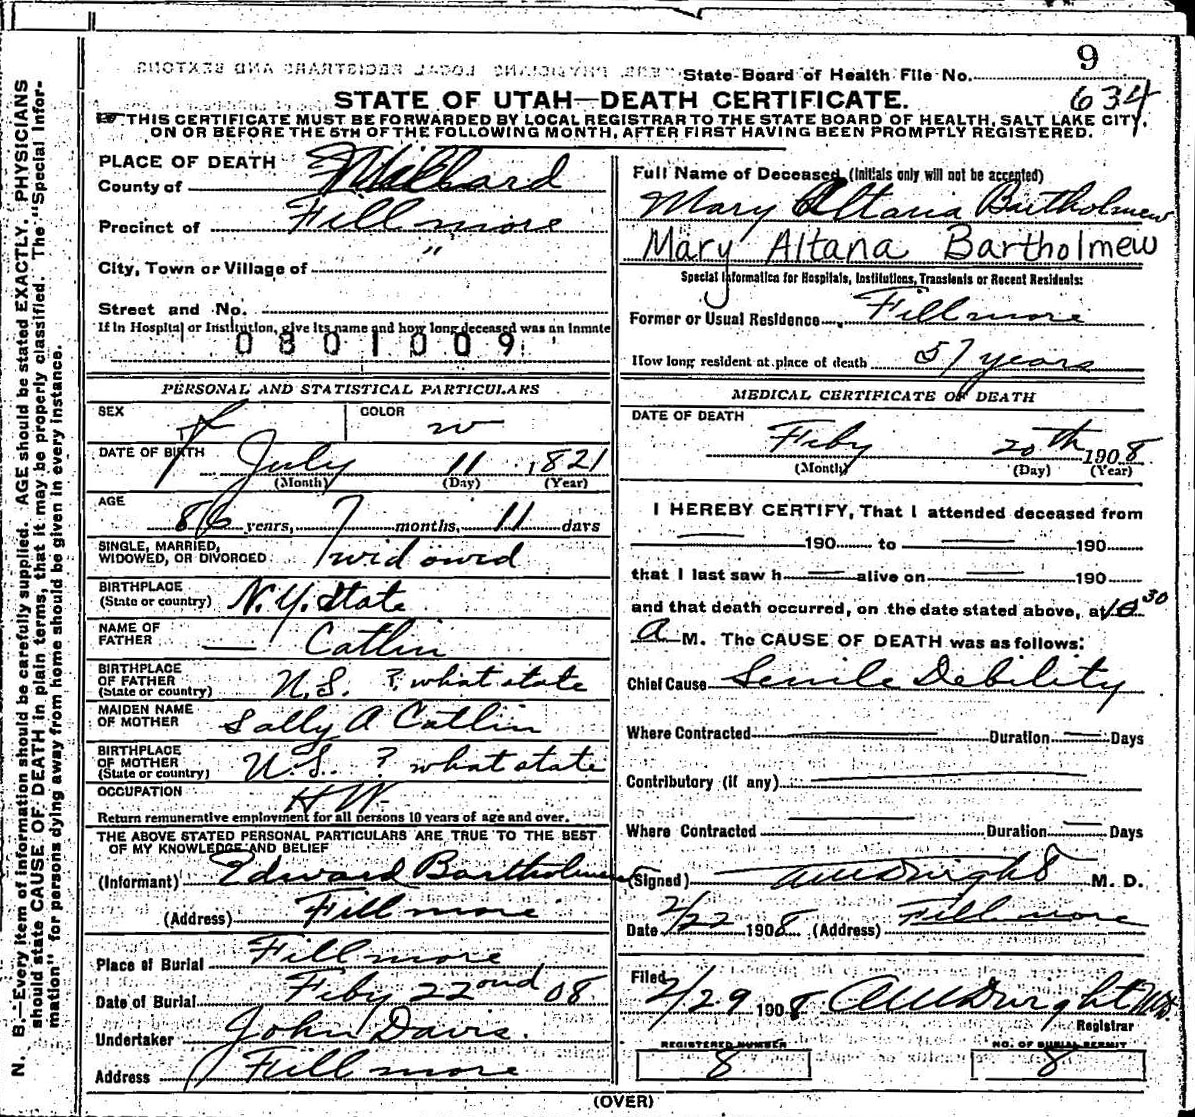 9
State Board of Health File No.
634
STATE OF UTAH—DEATH CERTIFICATE.
THIS CERTIFICATE MUST BE FORWARDED BY LOCAL REGISTRAR TO THE STATE BOARD OF HEALTH, SALT LAKE CITY,
ON OR BEFORE THE 5TH OF THE FOLLOWING MONTH, AFTER FIRST HAVING BEEN PROMPTLY REGISTERED.
N. B.—Every item of information should be carefully supplied. AGE should be stated EXACTLY. PHYSICIANS
should state CAUSE OF DEATH in plain terms, that it may be properly classified. The "Special Infor-
mation" for persons dying away from home should be given in every instance.
PLACE OF DEATH
County of Millard
Precinct of Fillmore
City, Town or Village of "
Street and No.
If in Hospital or Institution, give its name and how long deceased was an inmate
0801009
PERSONAL AND STATISTICAL PARTICULARS
SEX f COLOR w
DATE OF BIRTH July 11 1821
(Month) (Day) (Year)
AGE
86 years, 7 months, 11 days
SINGLE, MARRIED,
WIDOWED, OR DIVORCED widowd
BIRTHPLACE
(State or country) N.Y. State
NAME OF
FATHER — Catlin
BIRTHPLACE
OF FATHER
(State or country) U.S. ? what state
MAIDEN NAME
OF MOTHER Sally A Catlin
BIRTHPLACE
OF MOTHER
(State or country) U.S. ? what state
OCCUPATION HW
Return remunerative employment for all persons 10 years of age and over.
THE ABOVE STATED PERSONAL PARTICULARS ARE TRUE TO THE BEST
OF MY KNOWLEDGE AND BELIEF
(Informant) Edward Bartholmew
(Address) Fillmore
Place of Burial Fillmore
Date of Burial Feby 22nd 08
Undertaker John Davis.
Address Fillmore
Full Name of Deceased (Initials only will not be accepted)
Mary Altana Bartholmew
Mary Altana Bartholmew
Special Information for Hospitals, Institutions, Transients or Recent Residents:
Former or Usual Residence Fillmore
How long resident at place of death 57 years
MEDICAL CERTIFICATE OF DEATH
DATE OF DEATH
Feby 20th 1908
(Month) (Day) (Year)
I HEREBY CERTIFY, That I attended deceased from
— 190 to — 190
that I last saw h — alive on — 190
and that death occurred, on the date stated above, at 10 30
a M. The CAUSE OF DEATH was as follows:
Chief Cause Senile Debility
Where Contracted — Duration — Days
Contributory (if any) —
Where Contracted — Duration — Days
(Signed) M. D.
Date 2/22 1908 (Address) Fillmore
Filed
2/29 1908
Registrar
REGISTERED NUMBER
8
NO. OF BURIAL PERMIT
8
(OVER)